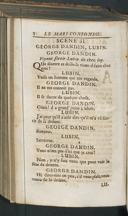 LE MARI CONFONDU.
SCENE II.
GEORGE DANDIN, LUBIN.
GEORGE DANDIN.
Voyant sortir Lubin de chez lui.
Que diantre ce drôle-là vient-il faire chez
LUBIN.
Voilà un homme qui me regarde.
GEORGE DANDIN.
Il ne me connoît pas.
LUBIN.
Il se doute de quelque chose.
GEORGE DANDIN.
LUBIN.
J'ai peur qu'il n'aille dire qu'il m'a vû sortir
de là dedans.
GEORGE DANDIN.
Bonjour.
LUBIN.
Serviteur.
GEORGE DANDIN.
Vous n'êtes pas d'ici que je croi?
LUBIN.
Non, je n'y suis venu que pour voir la
fête de demain.
GEORGE DANDIN.
Hé dites-moi un peu, s'il vous plaît, vous
venez de là dedans.
LU-